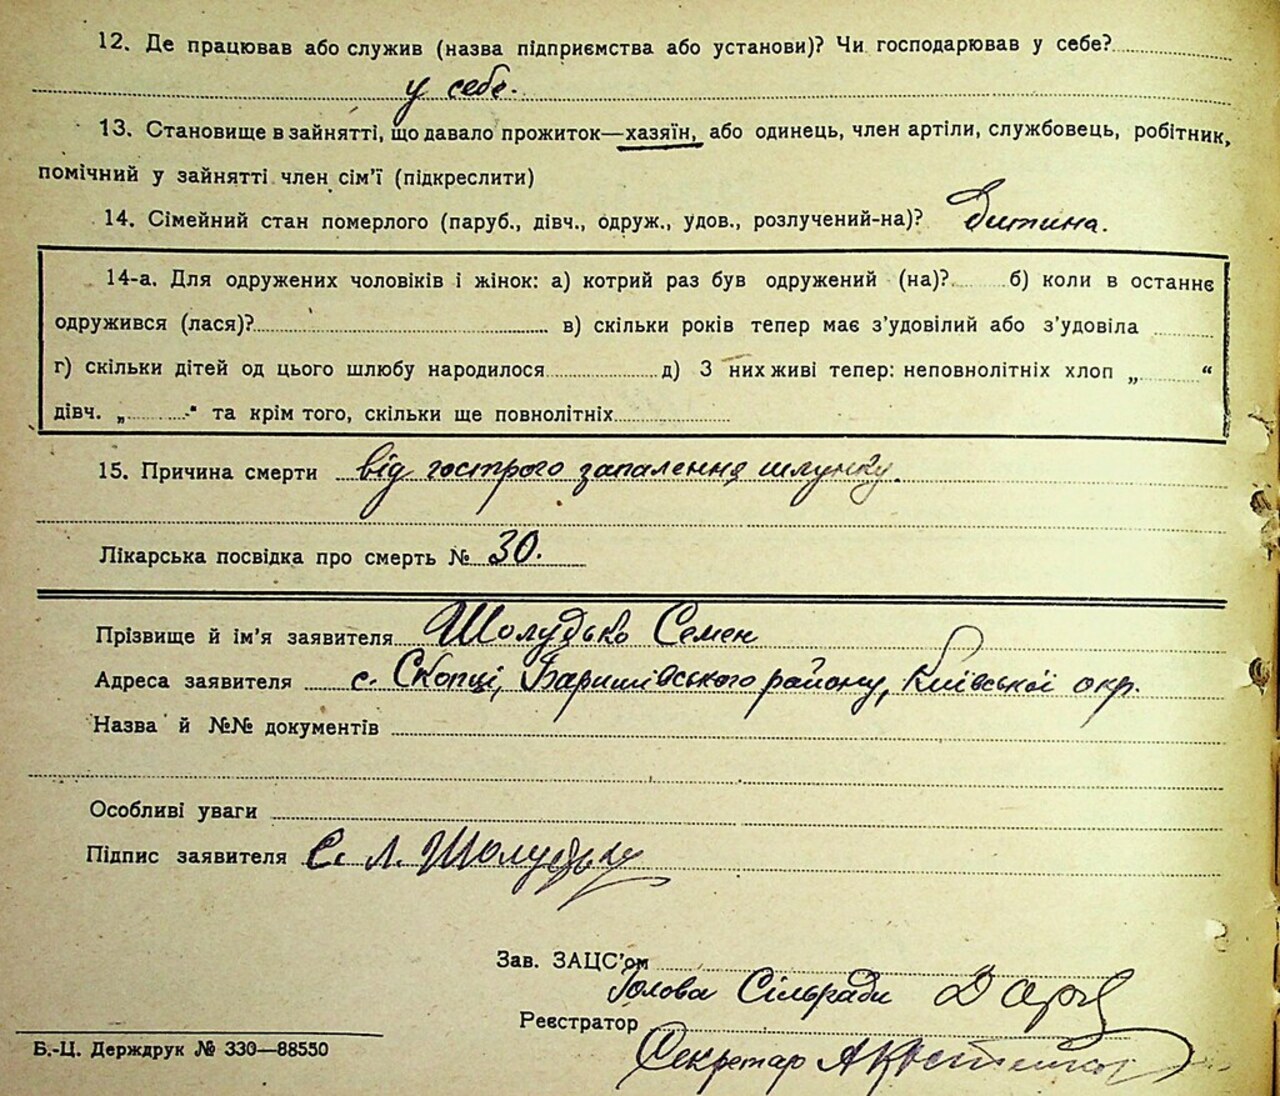 12. Де працював або служив (назва підприємства або установи)? Чи господарював у себе?
у себе.
13. Становище в зайнятті, що давало прожиток—хазяїн, або одинець, член артіли, службовець, робітник,
помічний у зайнятті член сім'ї (підкреслити)
14. Сімейний стан померлого (паруб., дівч., одруж., удов., розлучений-на)? Дитина.
14-а. Для одружених чоловіків і жінок: а) котрий раз був одружений (на)? б) коли в останнє
одружився (лася)? в) скільки років тепер має з'удовілий або з'удовіла
г) скільки дітей од цього шлюбу народилося д) З них живі тепер: неповнолітніх хлоп „ “
дівч. „ “ та крім того, скільки ще повнолітніх
15. Причина смерти від гострого запалення шлунку.
Лікарська посвідка про смерть № 30.
Прізвище й ім'я заявителя Шолудько Семен
Адреса заявителя с. Скопці, Баришівського району, Київської окр.
Назва й №№ документів
Особливі уваги
Підпис заявителя С. Л. Шолудько
Зав. ЗАЦС'ом
Голова Сільради
Реєстратор
Секретар
Б.-Ц. Держдрук № 330—88550